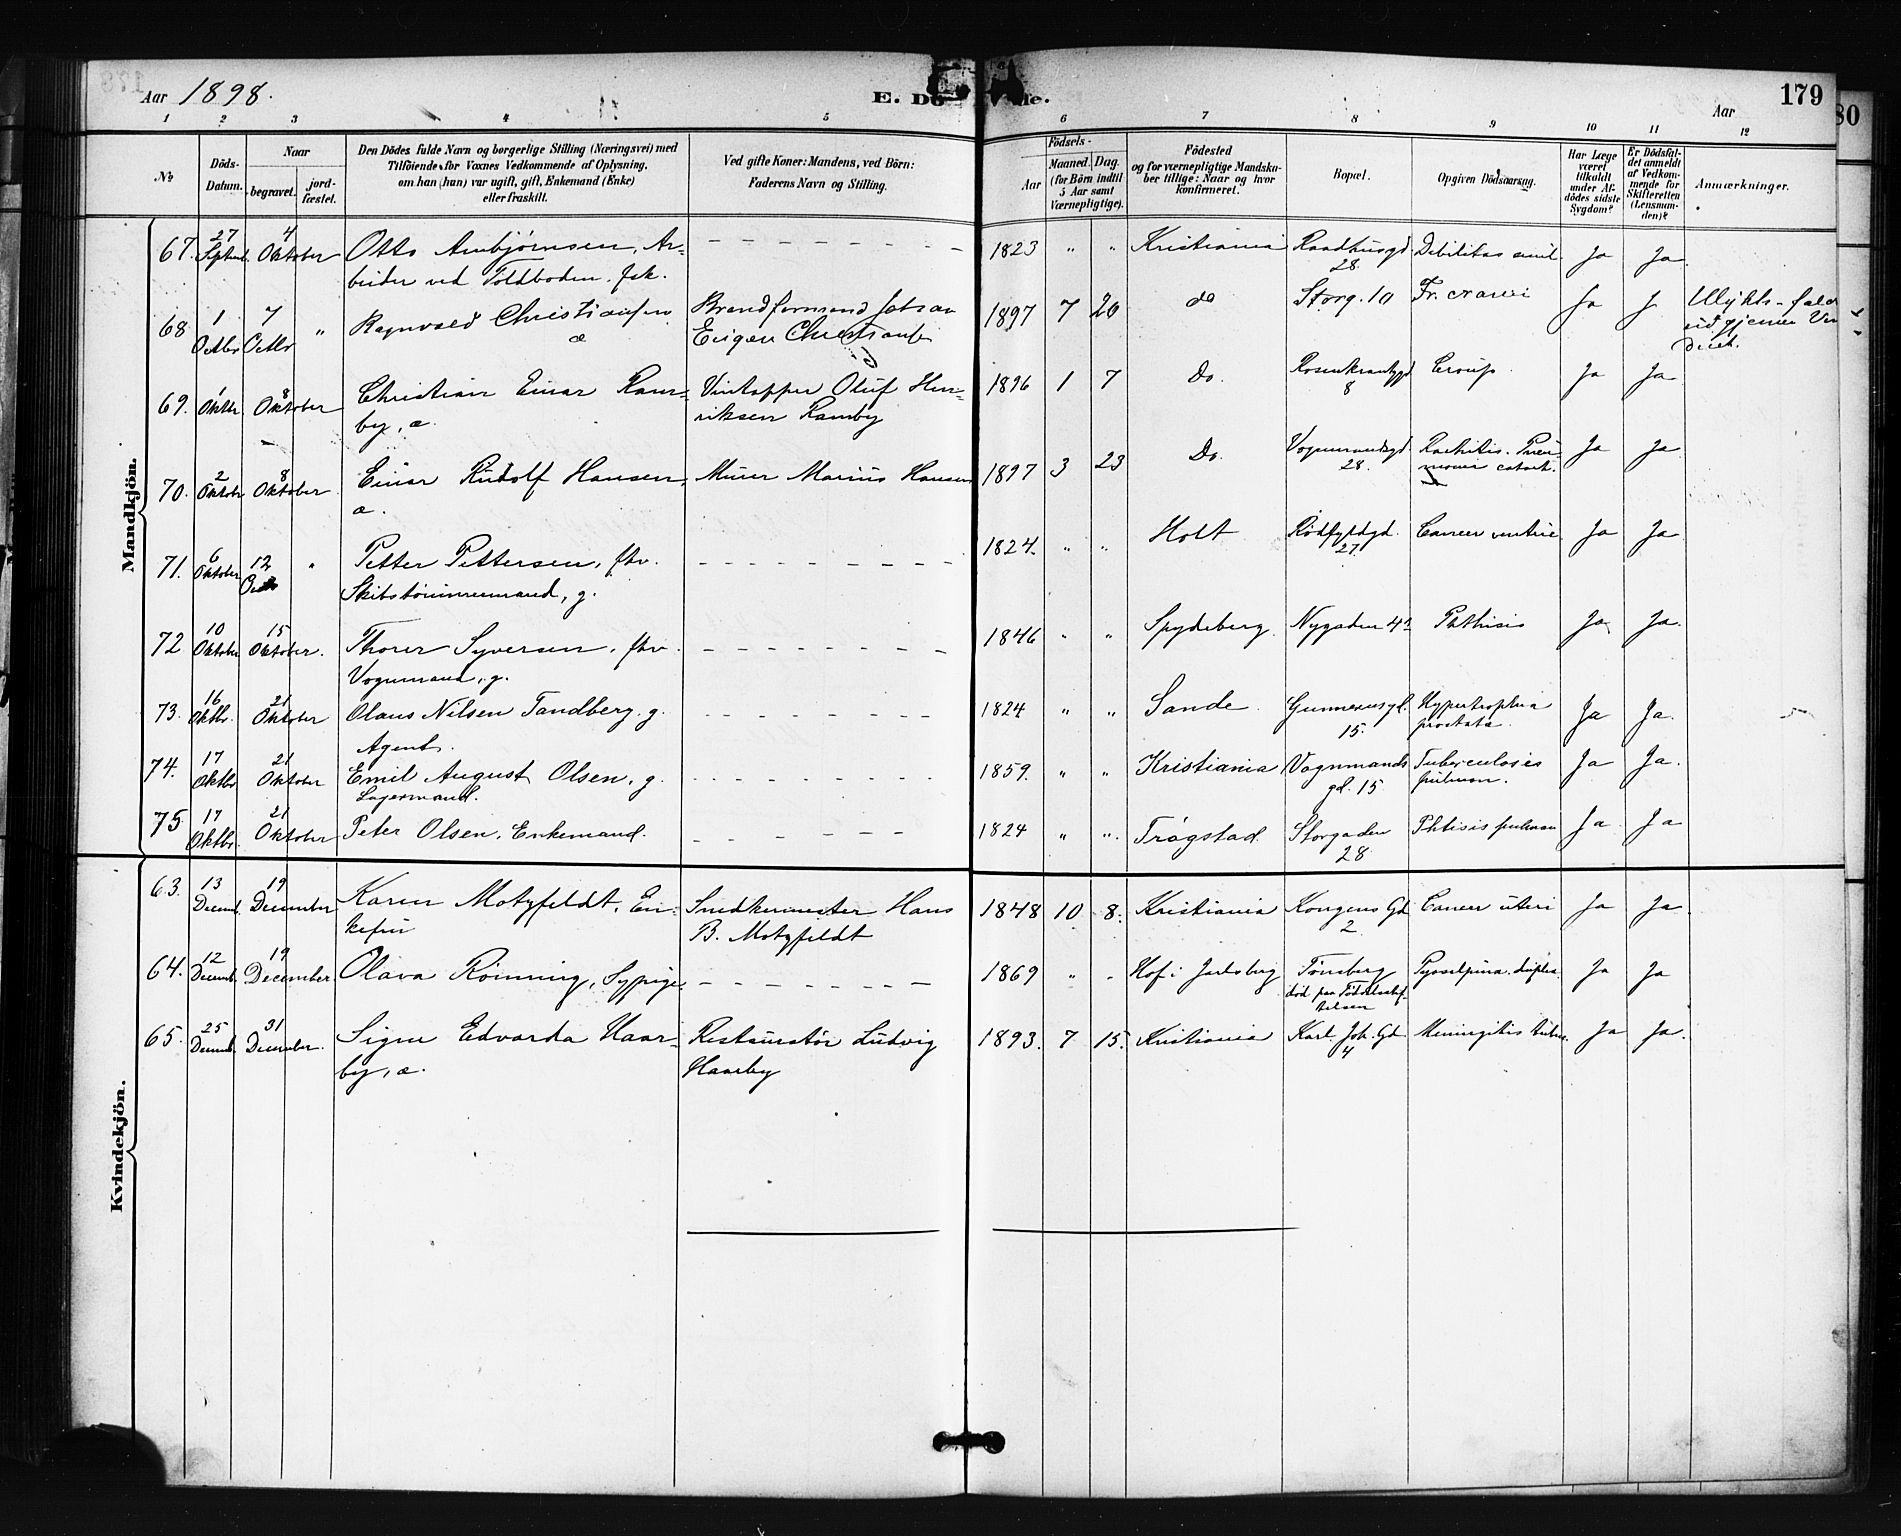 Aar 1898.
E. Dø de.
Aar
179
80
1 2 3 4 5 6 7 8 9 10 11 12
№
Døds-Datum.
Naar
begravet.
jord-fæstet.
Den Dödes fulde Navn og borgerlige Stilling (Næringsvei) med
Tilföiende for Voxnes Vedkommende af Oplysning,
om han (hun) var ugift, gift, Enkemand (Enke)
eller fraskilt.
Ved gifte Koner: Mandens, ved Börn:
Faderens Navn og Stilling.
Födsels-
Aar
Maaned. Dag.
(for Börn indtil
5 Aar samt
Værnepligtige).
Födested
og for værnepligtige Mandska-
ber tillige: Naar og hvor
konfirmeret.
Bopæl.
Opgiven Dödsaarsag.
Har Læge
været
tilkaldt
under Af-
dödes sidste
Sygdom?
Er Dödsfal-
det anmeldt
af Vedkom-
mende for
Skifteretten
(Lensman-
den)?
Anmærkninger.
Mandkjön.
67. 27 Septemb. 4 Oktober Otto Arnbjørnsen, Ar- 1823 " " Kristiania Raadhusgd 28. Debilitas senil. Ja Ja
beider ved Toldboden. fsk.
68 1 Octbr 7 Octbr " Ragnvald Christiansen 1897 7 20 do Storg. 10 Fr. cranii Ja J
æ
Christiansen
69. 1 Oktbr 8 Oktober Christian Einar Ram- Vintapper Oluf Hen- 1896 1 7 Do. Rosenkrantzgd 8 Croup. Ja Ja
by, æ. riksen Ramby
70. 2 Oktob. 8 Oktober Einar Rudolf Hansen, Murer Marius Hansen 1897 3 23 Do. Vognmandsgd 28. Rachitis. Pneu- Ja Ja
æ. monia catarrh.
71. 6 Oktober 12 Octb " Petter Pettersen, fhv. 1824. " " Holt Rødfyldgd. 27. Cancer ventric Ja Ja
Skibstømmermand, g.
72 10 Oktober 15 Oktober. Thorer Syversen, fhv. 1846 " " Spydeberg. Nygaden Phthisis Ja Ja.
Vognmand, g.
73. 16 Oktbr. 21 Oktober Olaus Nilsen Tandberg. g. 1824 " " Sande. Gunnerusgd. 15. Hypertrophia prostata. Ja Ja.
Agent.
74. 17 Oktbr 21 Oktober Emil August Olsen, g. 1859. " " Kristiania Vognmands gd. 15 Tuberculosis pulmon. Ja Ja.
Lagermand.
75 17 Oktbr. 21 Oktober Peter Olsen, Enkemand. 1824 " " Trøgstad. Storgaden 28 Phtisis pulmon Ja Ja
Kvindekjön.
63. 13 Decemb. 19 December Karen Motzfeldt, En- Snedkermester Hans 1848 10 8. Kristiania Kongens Gd 2 Cancer uteri Ja Ja
kefru B. Motzfeldt
64. 12 Decemb. 19 December Olava Rönning, Sypige. 1869 " " Hof i Jarlsberg Tønsberg Ja Ja
død paa Fødselsstif-
telsen
65. 25 Decemb. 31 December. Signe Edvarda Haar- Restauratør Ludvig 1893. 7 15. Kristiania Karl Joh. Gd. 4 Meningitis tuberc. Ja Ja.
by, æ. Haarby